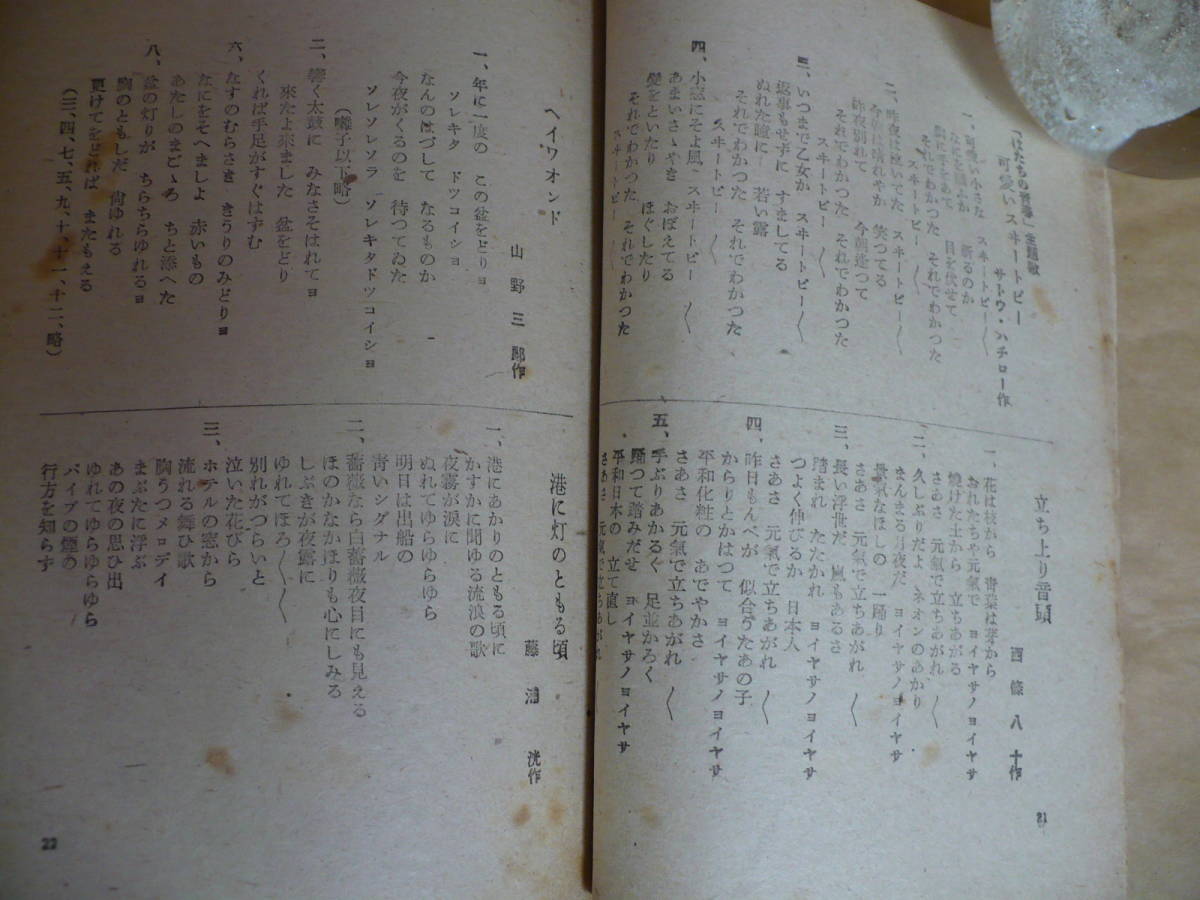 「はたちの青春」主題歌
可愛いスヰートピー
サトウ・ハチロー作
一、可愛い小さな スヰートピー〱
なにを願ふか 祈るのか
胸に手をあて 目を伏せて
それでわかつた それでわかつた
スヰートピー 〱
二、昨夜は泣いてた スヰートピー〱
今朝は晴れやか 笑つてる
昨夜別れて 今朝逢つて
それでわかつた それでわかつた
スヰートピー 〱
三、いつまで乙女か スヰートピー〱
返事もせずに すましてる
ぬれた瞳に 若い露
それでわかつた それでわかつた
スヰートピー 〱
四、小窓にそよ風 スヰートピー 〱
あまいさゝやき おぼえてる
髪をといたり ほぐしたり
それでわかつた それでわかつた
スヰートピー 〱
立ち上り音頭
西條八十作
一、花は枝から 青葉は芽から
おれたちや元氣で ヨイヤサノヨイヤサ
燒けた土から 立ちあがる
さあさ 元氣で立ちあがれ 〱
二、久しぶりだよ ネオンのあかり
まんまる月夜だ ヨイヤサノヨイヤサ
景氣なほしの 一踊り
さあさ 元氣で立ちあがれ 〱
三、長い浮世だ 嵐もあるさ
踏まれ たたかれ ヨイヤサノヨイヤサ
つよく伸びるか 日本人
さあさ 元氣で立ちあがれ 〱
四、昨日もんぺが 似合うたあの子
からりとかはつて ヨイヤサノヨイヤサ
平和化粧の あでやかさ
さあさ 元氣で立ちあがれ 〱
五、手ぶりあかるぐ 足並かろく
踊つて踏みだせ ヨイヤサノヨイヤサ
平和日本の 立て直し
さあさ 元氣で立ちあがれ
21
ヘイワオンド
山野三郎作
一、年に一度の この盆をどりヨ
ソレキタ ドツコイシヨ
なんのはづして なるものか
今夜がくるのを 待つてゐた
ソレソレソラ ソレキタドツコイシヨ
(囃子以下略)
二、響く太鼓に みなさそはれてヨ
來たよ來ました 盆をどり
くれば手足がすぐはずむ
六、なすのむらさき きうりのみどりヨ
なにをそへましよ 赤いもの
あたしのまごゝろ ちと添へた
八、盆の灯りが ちらちらゆれるヨ
胸のともしだ 尙ゆれる
更けてをどれば またもえる
(三、四、七、五、九、十、十一、十二、略)
港に灯のともる頃
藤浦洸作
一、港にあかりのともる頃に
かすかに聞ゆる流浪の歌
夜霧が涙に
ぬれてゆらゆらゆら
明日は出船の
靑いシグナル
二、薔薇なら白薔薇夜目にも見える
ほのかなかほりも心にしみる
しぶきが夜露に
ゆれてほろ〱〱
別れがつらいと
泣いた花びら
三、ホテルの窓から
流れる舞ひ歌
胸うつメロデイ
まぶたに浮ぶ
あの夜の思ひ出
ゆれてゆらゆらゆら
パイプの煙の
行方を知らず
22